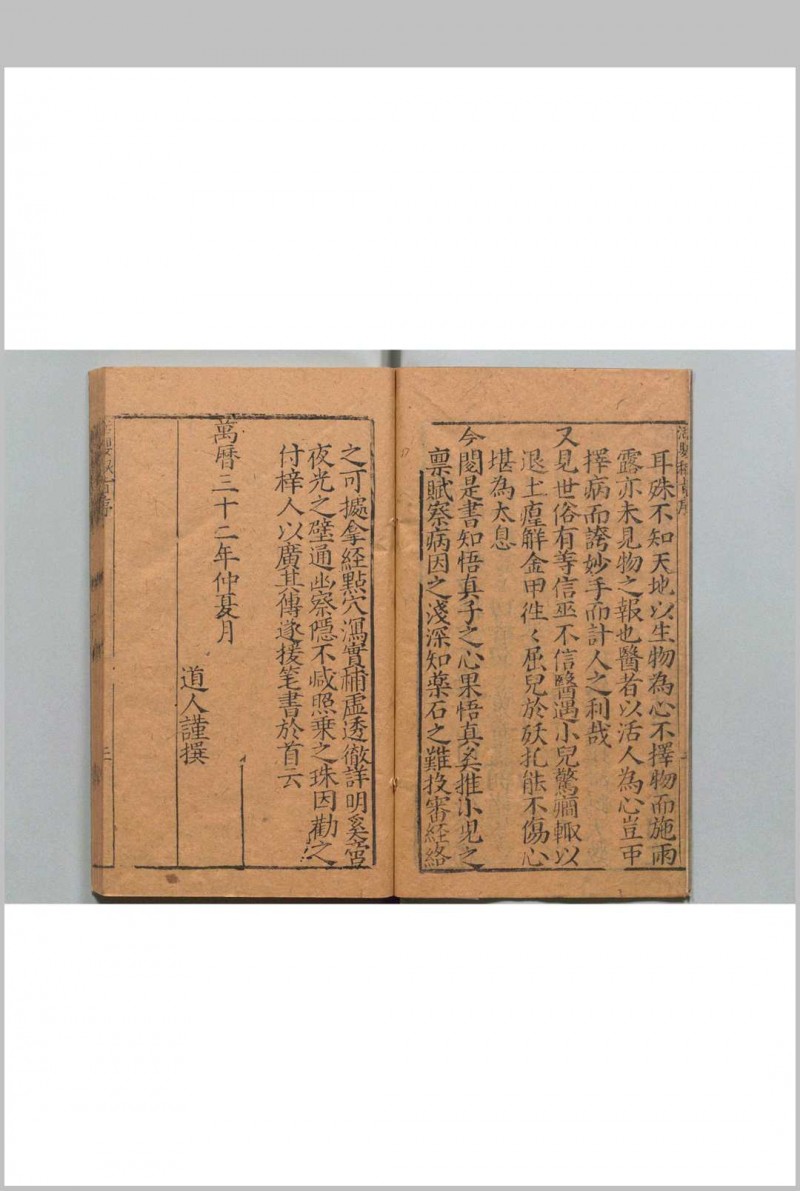 耳殊不知天地以生物為心不擇物而施雨
露亦未見物之報也醫者以活人為心豈可
擇病而誇妙手而計人之利哉
又見世俗有等信巫不信醫遇小兒驚癇輙以
退土瘟解金甲徃〻屈兒於殀扎能不傷心
堪為太息
今閱是書知悟真子之心果悟真矣推小兒之
禀賦察病因之淺深知藥石之難投審經絡
之可據拿經點穴瀉實補虛透徹詳明奚啻
夜光之璧通幽察隱不减照乗之珠因勸之
付梓人以廣其傳遂援笔書於首云
萬曆三十二年仲夏月
道人謹撰